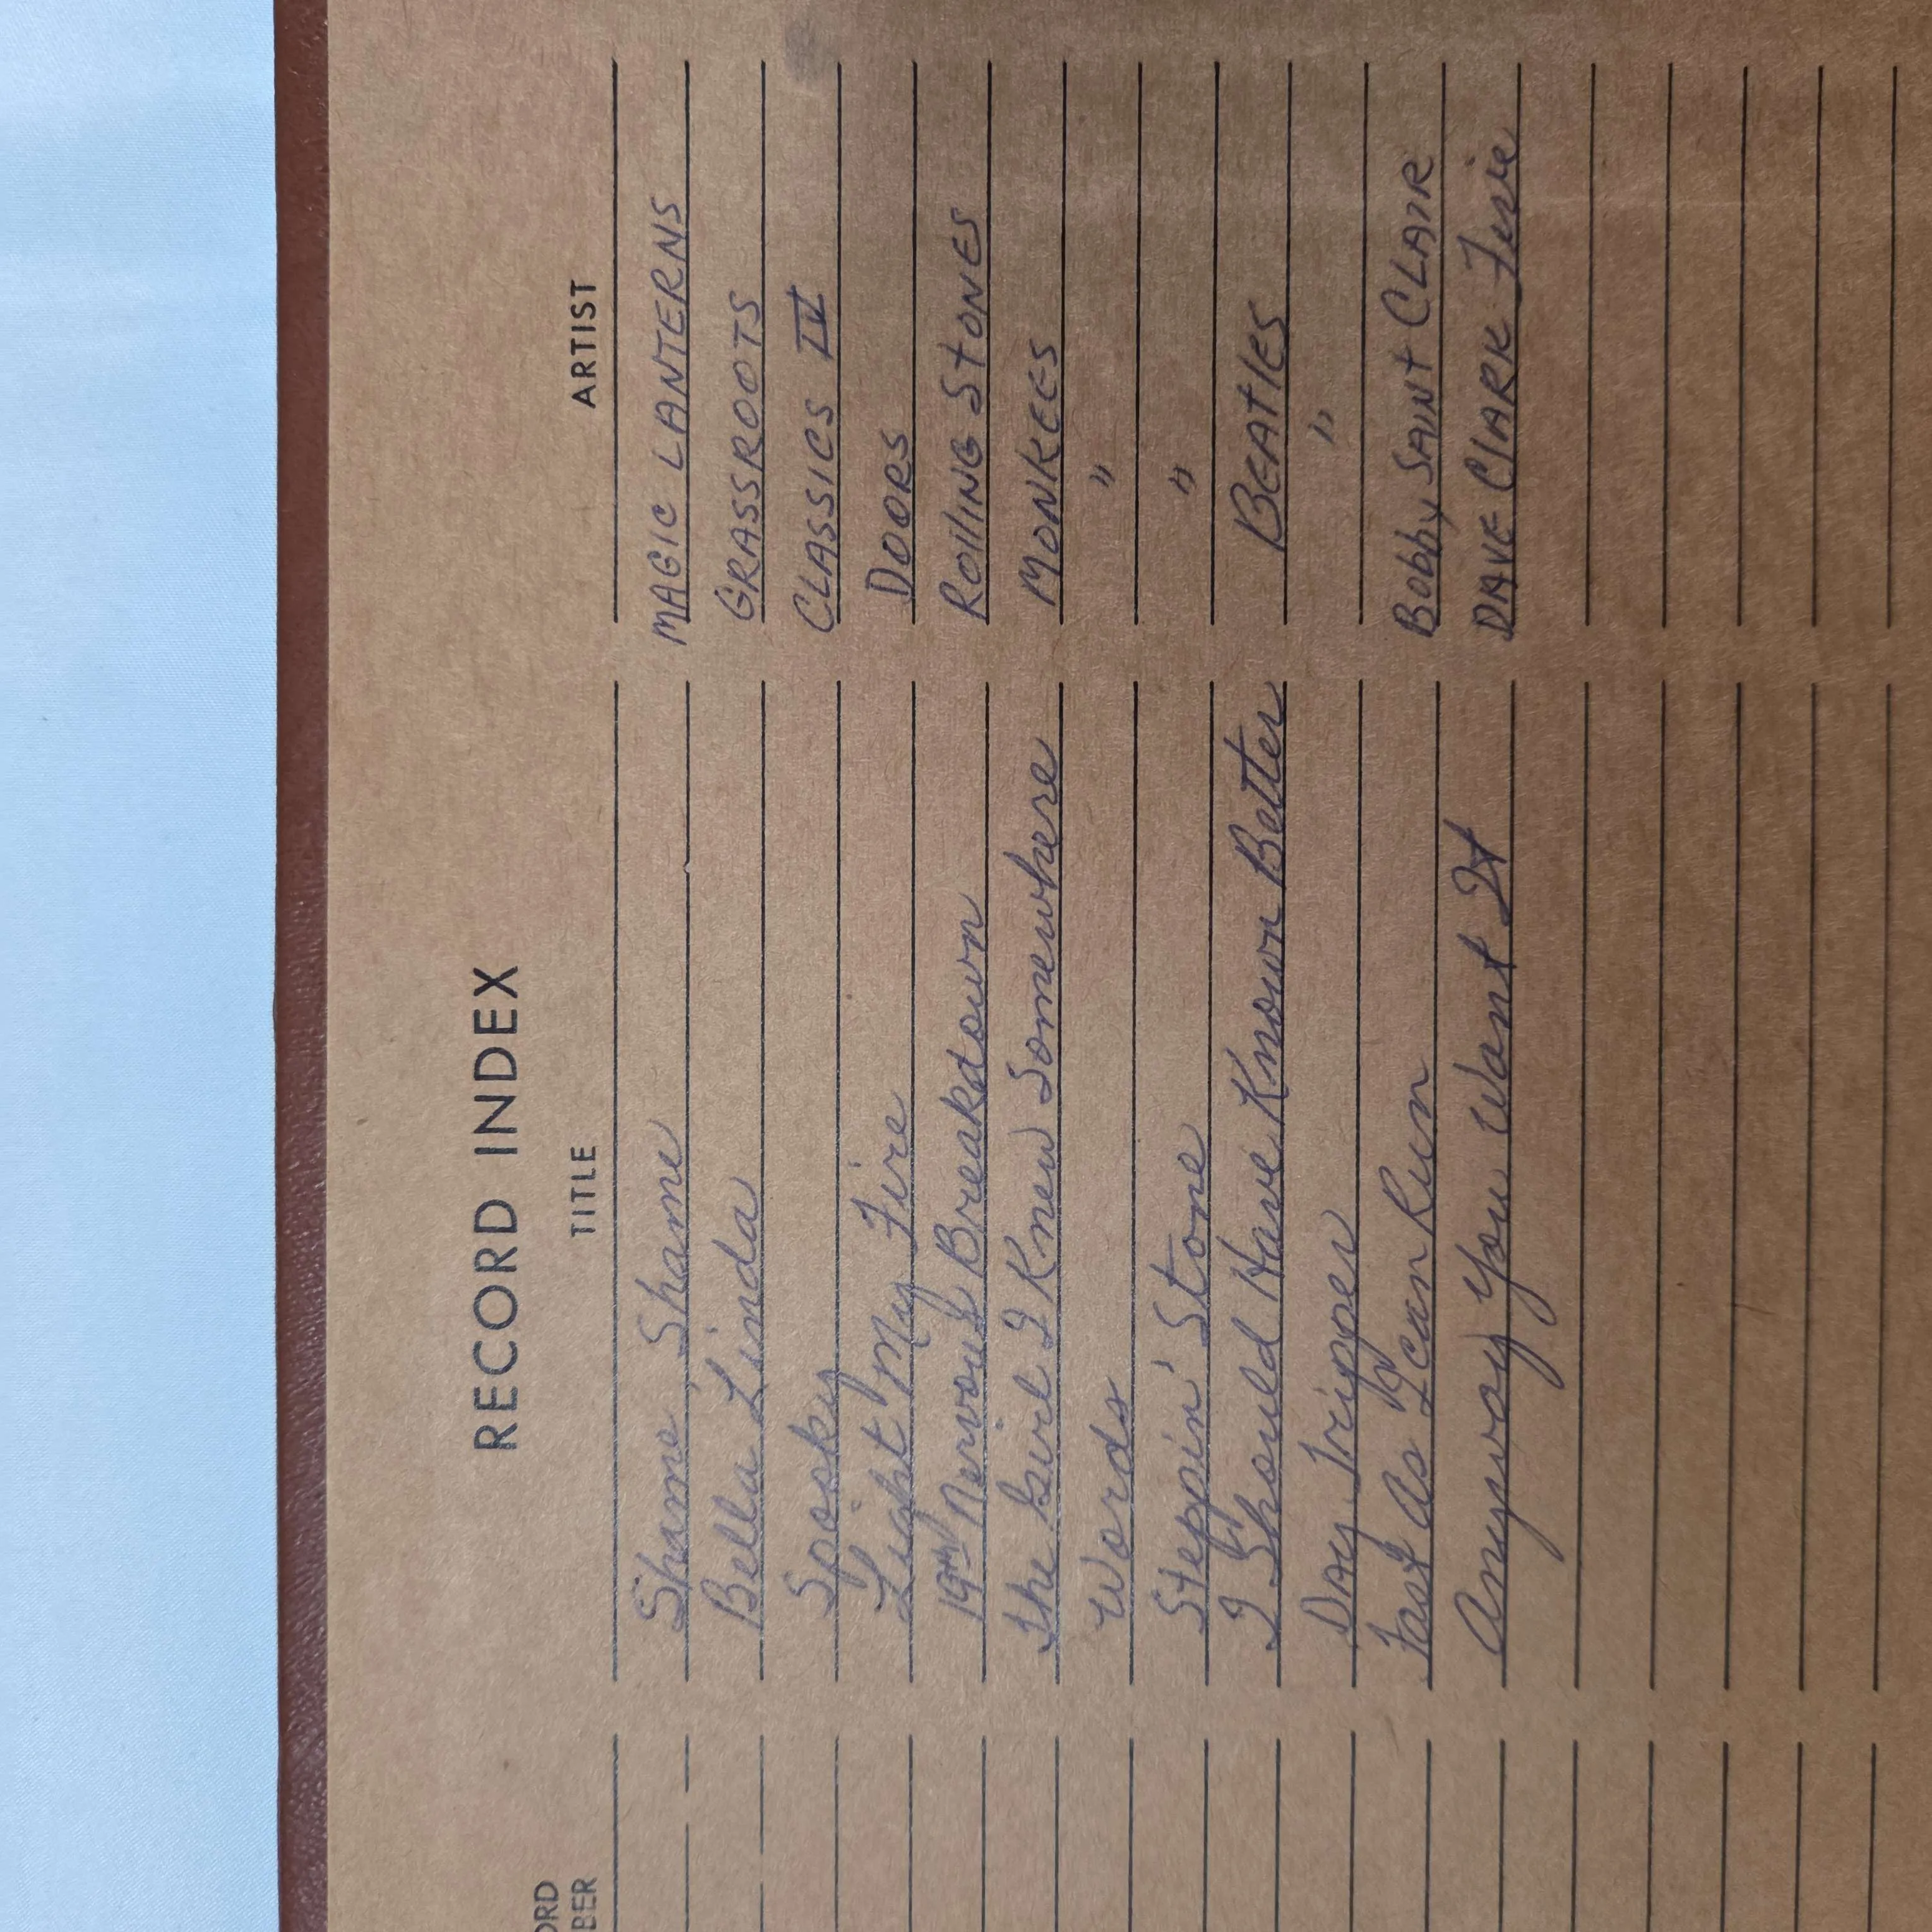 RECORD INDEX
ORD
BER TITLE ARTIST
Shame Shame MAGIC LANTERNS
Bella Linda GRASSROOTS
Spooky CLASSICS IV
Light My Fire DOORS
19th Nervous Breakdown ROllING StONES
The Girl I Knew Somewhere MONKEES
Words "
Steppin' Stone "
I Should Have Known Better BEAtlES
Day Tripper "
Fast As I Can Run Bobby SAINT CLAIR
Anyway You Want It DAVE ClARK Five